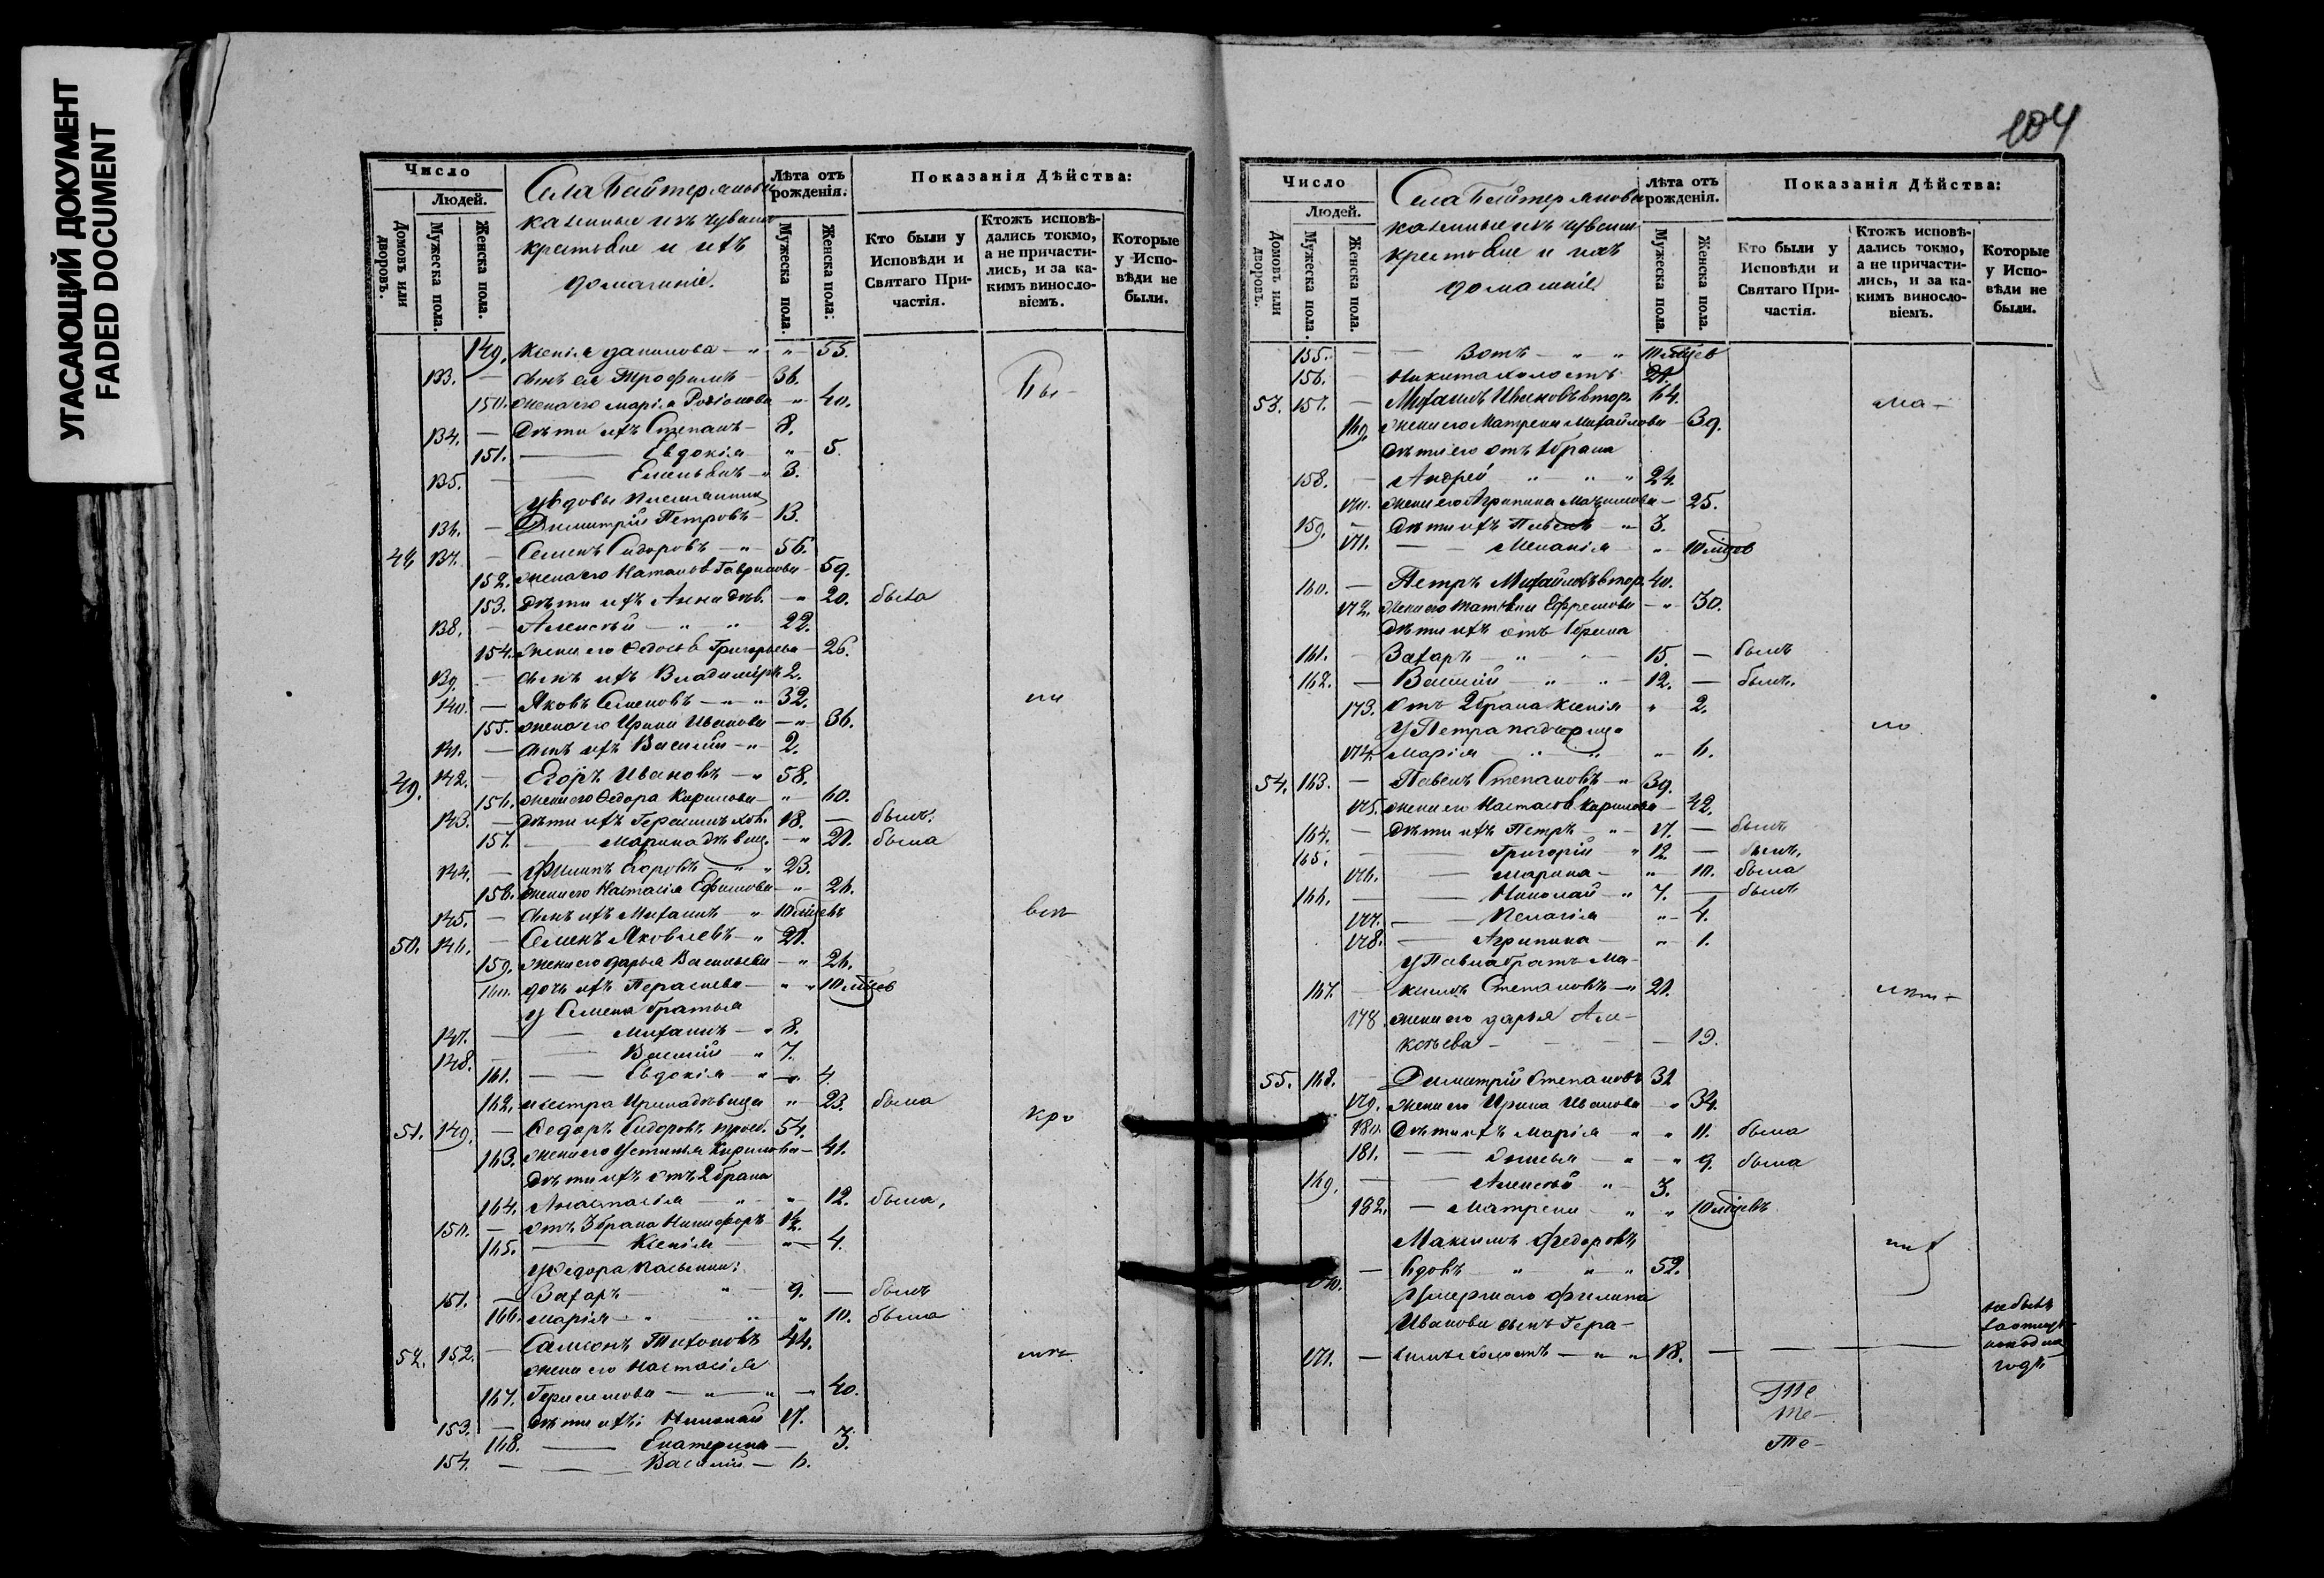 УГАСАЮЩИЙ ДОКУМЕНТ
FADED DOCUMENT
Число
Людей.
Домовъ или дворовъ.
Мужеска пола.
Женска пола.
Села Байтерякова
казенные изъ чувашъ
крестьяне и ихъ
домашніе.
Лѣта отъ рожденія.
Мужеска пола.
Женска пола:
Показанія Дѣйства:
Кто были у Исповѣди и Святаго Причастія.
Ктожъ исповѣдались токмо, а не причастились, и за какимъ винословіемъ.
Которые у Исповѣди не были.
149. Ксенія Данилова — " " — 55.
133. — сынъ ея Трофимъ — 36.
150. жена его Марія Родіонова — " 40.
134. — Дѣти ихъ Степанъ — 8.
151. — Евдокія " — 5.
135. — Емельянъ — " 3.
у вдовы племянникъ
136. — Димитрій Петровъ — 13.
48 137. — Семенъ Сидоровъ — " — 56.
152. жена его Наталья Гаврилова — 59.
153. дѣти ихъ Анна дѣв. — " 20. была
138. — Алексѣй — " " 22.
154. жена его Федосья Григорьева — 26.
139. — сынъ ихъ Владиміръ 2.
140. — Яковъ Семеновъ — " " 32.
155. жена его Ирина Иванова — " — 36.
141. — сынъ ихъ Василій — " 2.
49. 142. — Егоръ Ивановъ — " 58.
156. жена его Федора Кирилова — " — 60.
143. — дѣти ихъ Герасимъ хол. 18. — былъ.
157. — Марина дѣвица. — " 21. была
144. — Филипъ Егоровъ " " 23.
158. жена его Настасія Ефимова — " — 26.
145. — сынъ ихъ Михаилъ — " 10 мѣсцевъ
50. 146. — Семенъ Яковлевъ — " 21.
159. жена его Дарья Васильева — " 26.
160. дочь ихъ Параскева — " " 10 мѣсцев
у Семена братья
147. — Михаилъ — " 8.
148. — Василій — " 7.
161. — Евдокія — " — 4.
162. и сестра Ирина дѣвица " — 23. была
51. 149. — Федоръ Сидоровъ 54.
163. жена его Устинья Кирилова — 41.
дѣти ихъ отъ 2 брака
164. Анастасія — " — " 12. была,
150. — отъ 3 брака Никифоръ 12.
165. — Ксенія " — 4.
у Федора пасынки:
151. — Захаръ — " 9. — былъ
166. Марія — " " " 10. была
52. 152. — Самсонъ Тихоновъ 44.
жена его Настасія
167. Герасимова — " — " — 40.
153. — дѣти ихъ: Николай 17.
168. — Екатерина — 3.
154. — Василій — 6.
Бы-
ли
вси
кро
мѣ
104
Число
Людей.
Домовъ или дворовъ.
Мужеска пола
Женска пола.
Села Байтерякова
казенные изъ чувашъ
крестьяне и ихъ
домашніе
Лѣта отъ рожденія.
Мужеска пола.
Женска пола.
Показанія Дѣйства:
Кто были у Исповѣди и Святаго Причастія.
Ктожъ исповѣдались токмо, а не причастились, и за какимъ винословіемъ.
Которые у Исповѣди не были.
155. — — Зотъ — " — " 10 мѣсцев
156. — Никита холостъ 21.
53. 157. — Михаилъ Ивановъ втор. 64.
169. жена его Матрена Михайлова — 39.
дѣти его отъ 1 брака
158. — Андрей " — " — " 24.
170. жена его Агрипина Максимова — 25.
159. — дѣти ихъ Павелъ — " 3.
171. — Меланія " 10 мѣсцев
160. — Петръ Михайловъ втор. 40.
172. жена его Татьяна Ефремова — " — 30.
дѣти ихъ отъ 1 брака
161. — Захаръ — " — 15. — былъ
162. — Василій — " — 12. — былъ.
173. отъ 2 брака Ксенія " 2.
у Петра падчерица
174. Марія " " " — 6.
54. 163. — Павелъ Степановъ — " 39.
175. жена его Настасья Карилова — 42.
164. — дѣти ихъ Петръ — " — 17. — былъ
165. — Григорій — " 12. — былъ.
176. — Марина — " — 10. была
166. — Николай — " 7. — былъ
177. — Пелагія " — 4.
178. — Агрипина — " — 1.
у Павла братъ Ма-
167. ксимъ Степановъ — " 21.
178. жена его Дарья Але-
ксѣева — — 19.
55. 168. — Димитрій Степановъ 32
179. жена его Ирина Иванова — " 34.
180. Дѣти ихъ Марія — " " 11. была
181. — " — " 9. была
169. — Алексѣй " 3.
182. — Матрена — " " 10 мѣсцевъ
Максимъ Федоровъ
170. — вдовъ " " " 52.
Умершаго Филипа
Иванова сынъ Гера-
171. — симъ холостъ — " " 18. — — —
ма-
ло
лѣт-
них
не былъ
года
Те
те-
Те-